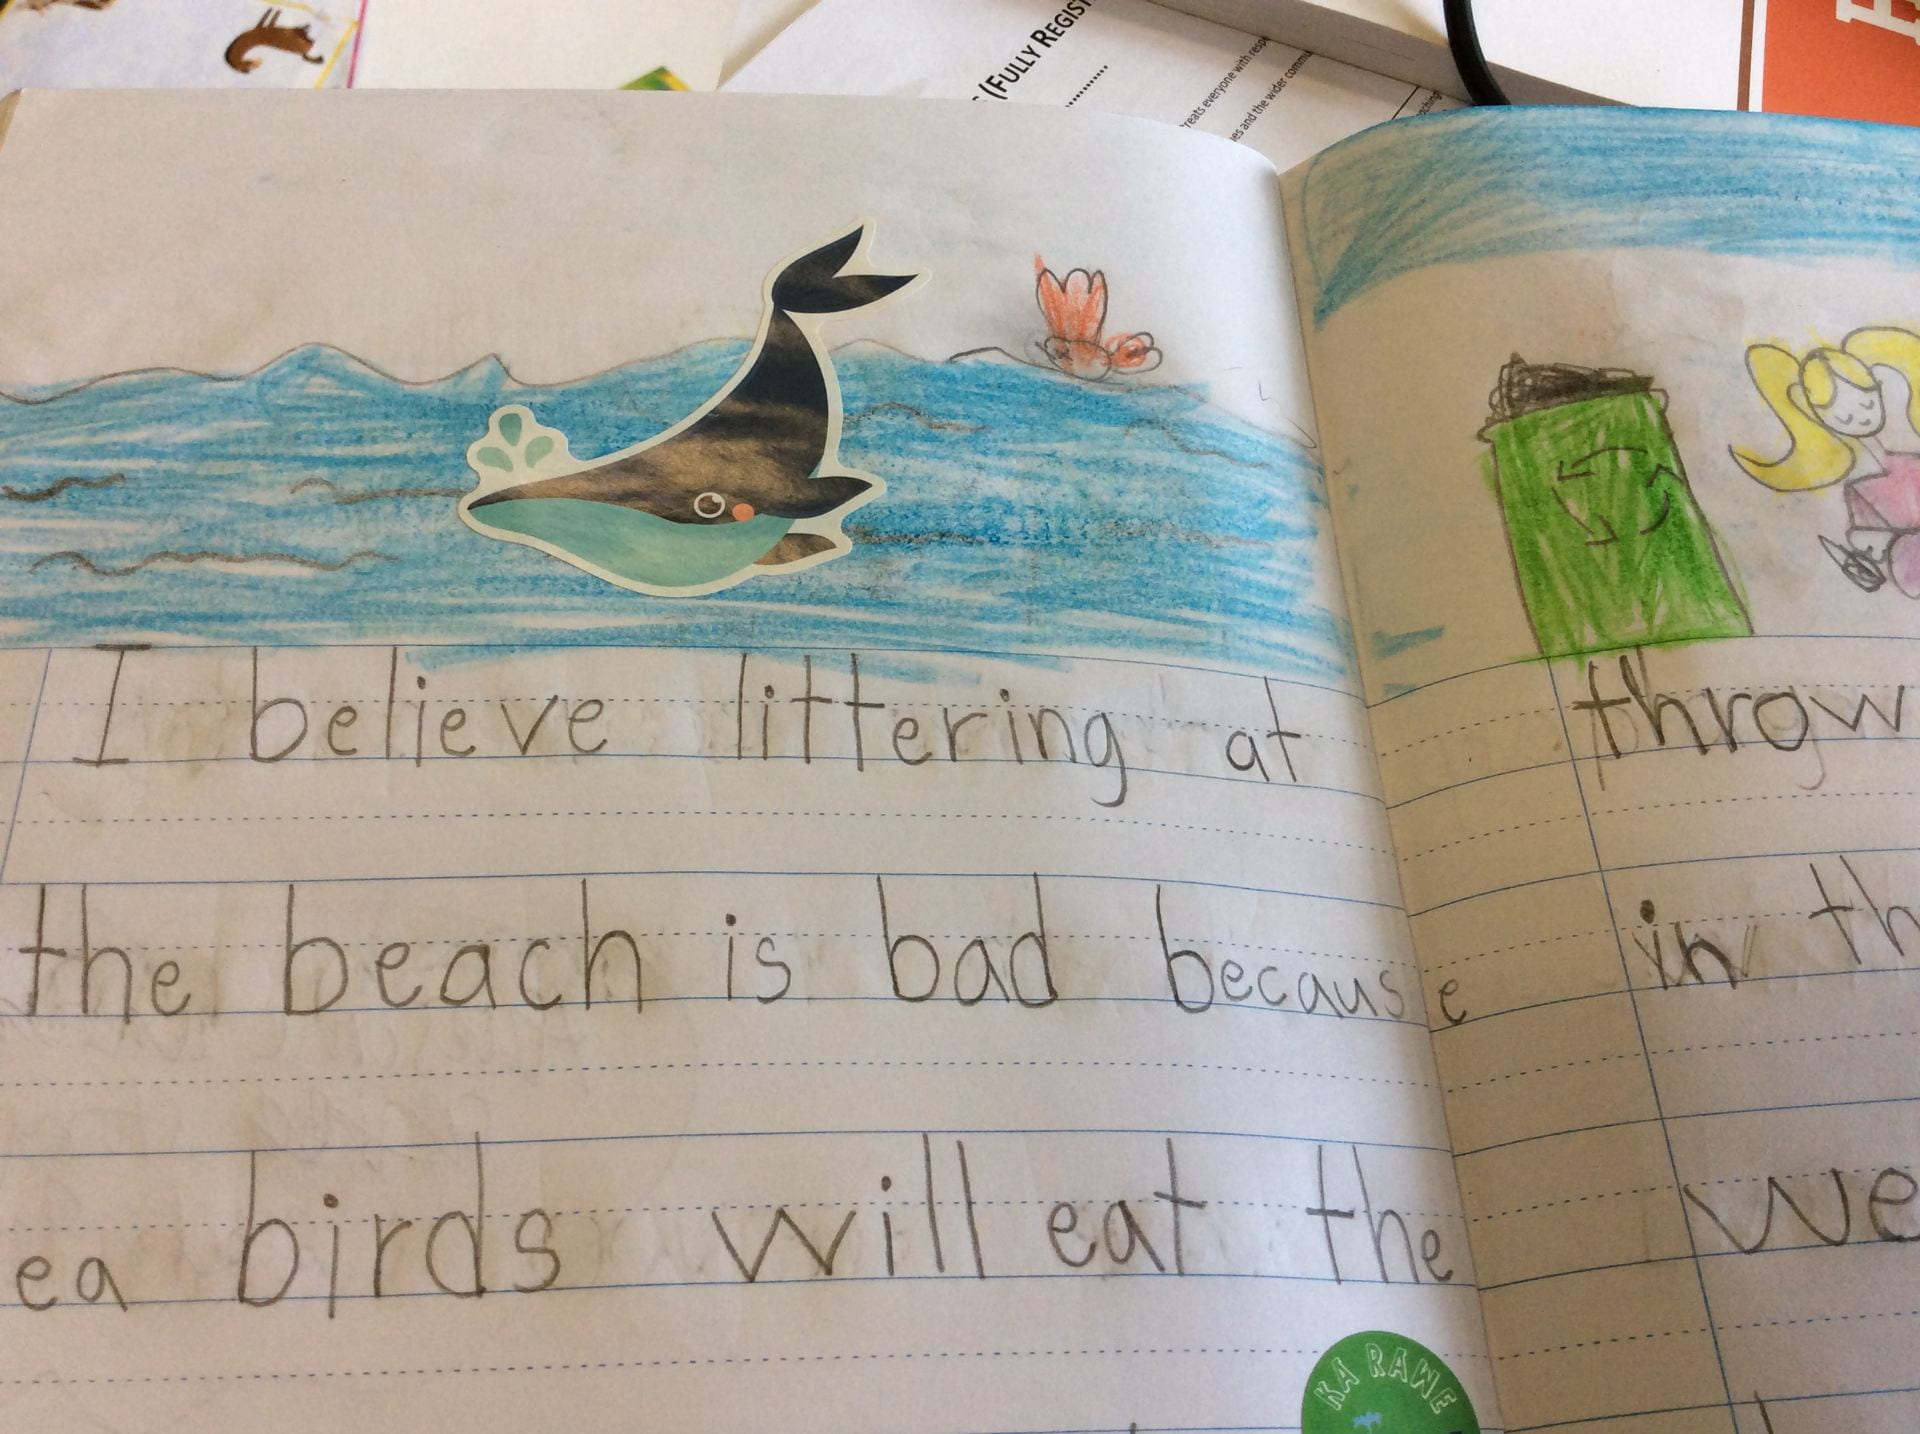 (FULLY REGIST
reats everyone with resp
es and the wider commu
I believe littering at
the beach is bad because
ea birds will eat the
KA RAWE
throw
in th
we